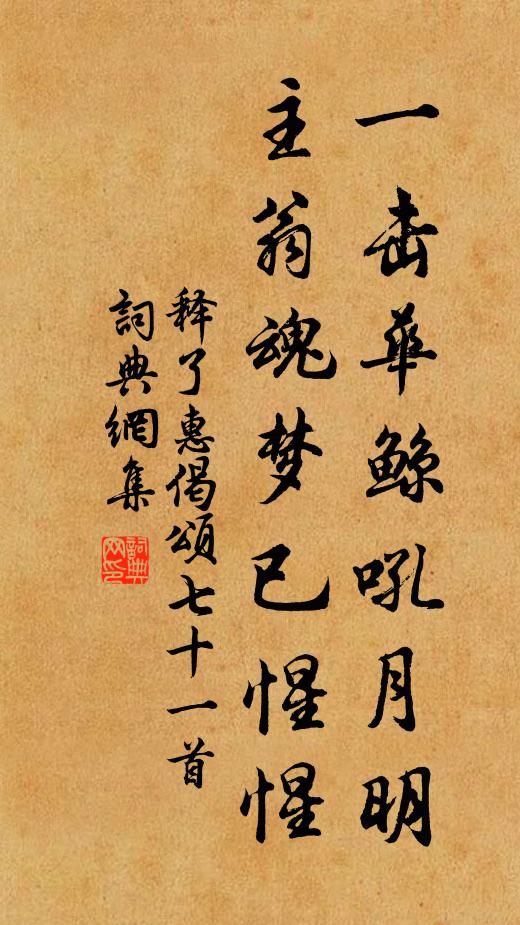 一击华鲸吼月明
主翁魂梦已惺惺
释了惠偈頌七十一首
詞典網集
詞典网印